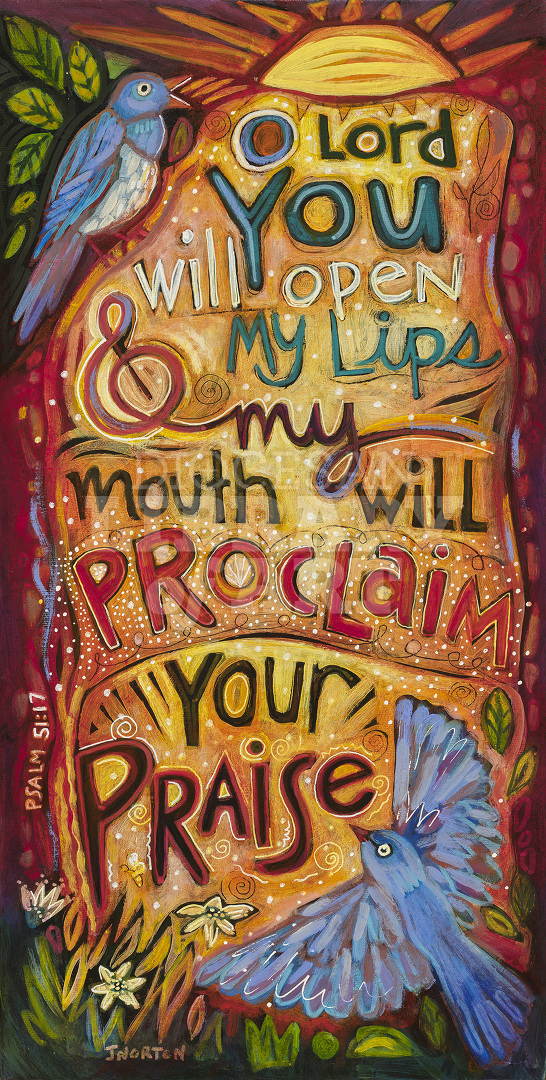 O Lord
YOU
will open
My Lips
& my
mouth will
PROCLaiM
Your
PRAISe
PSALM 51:17
JNORTON